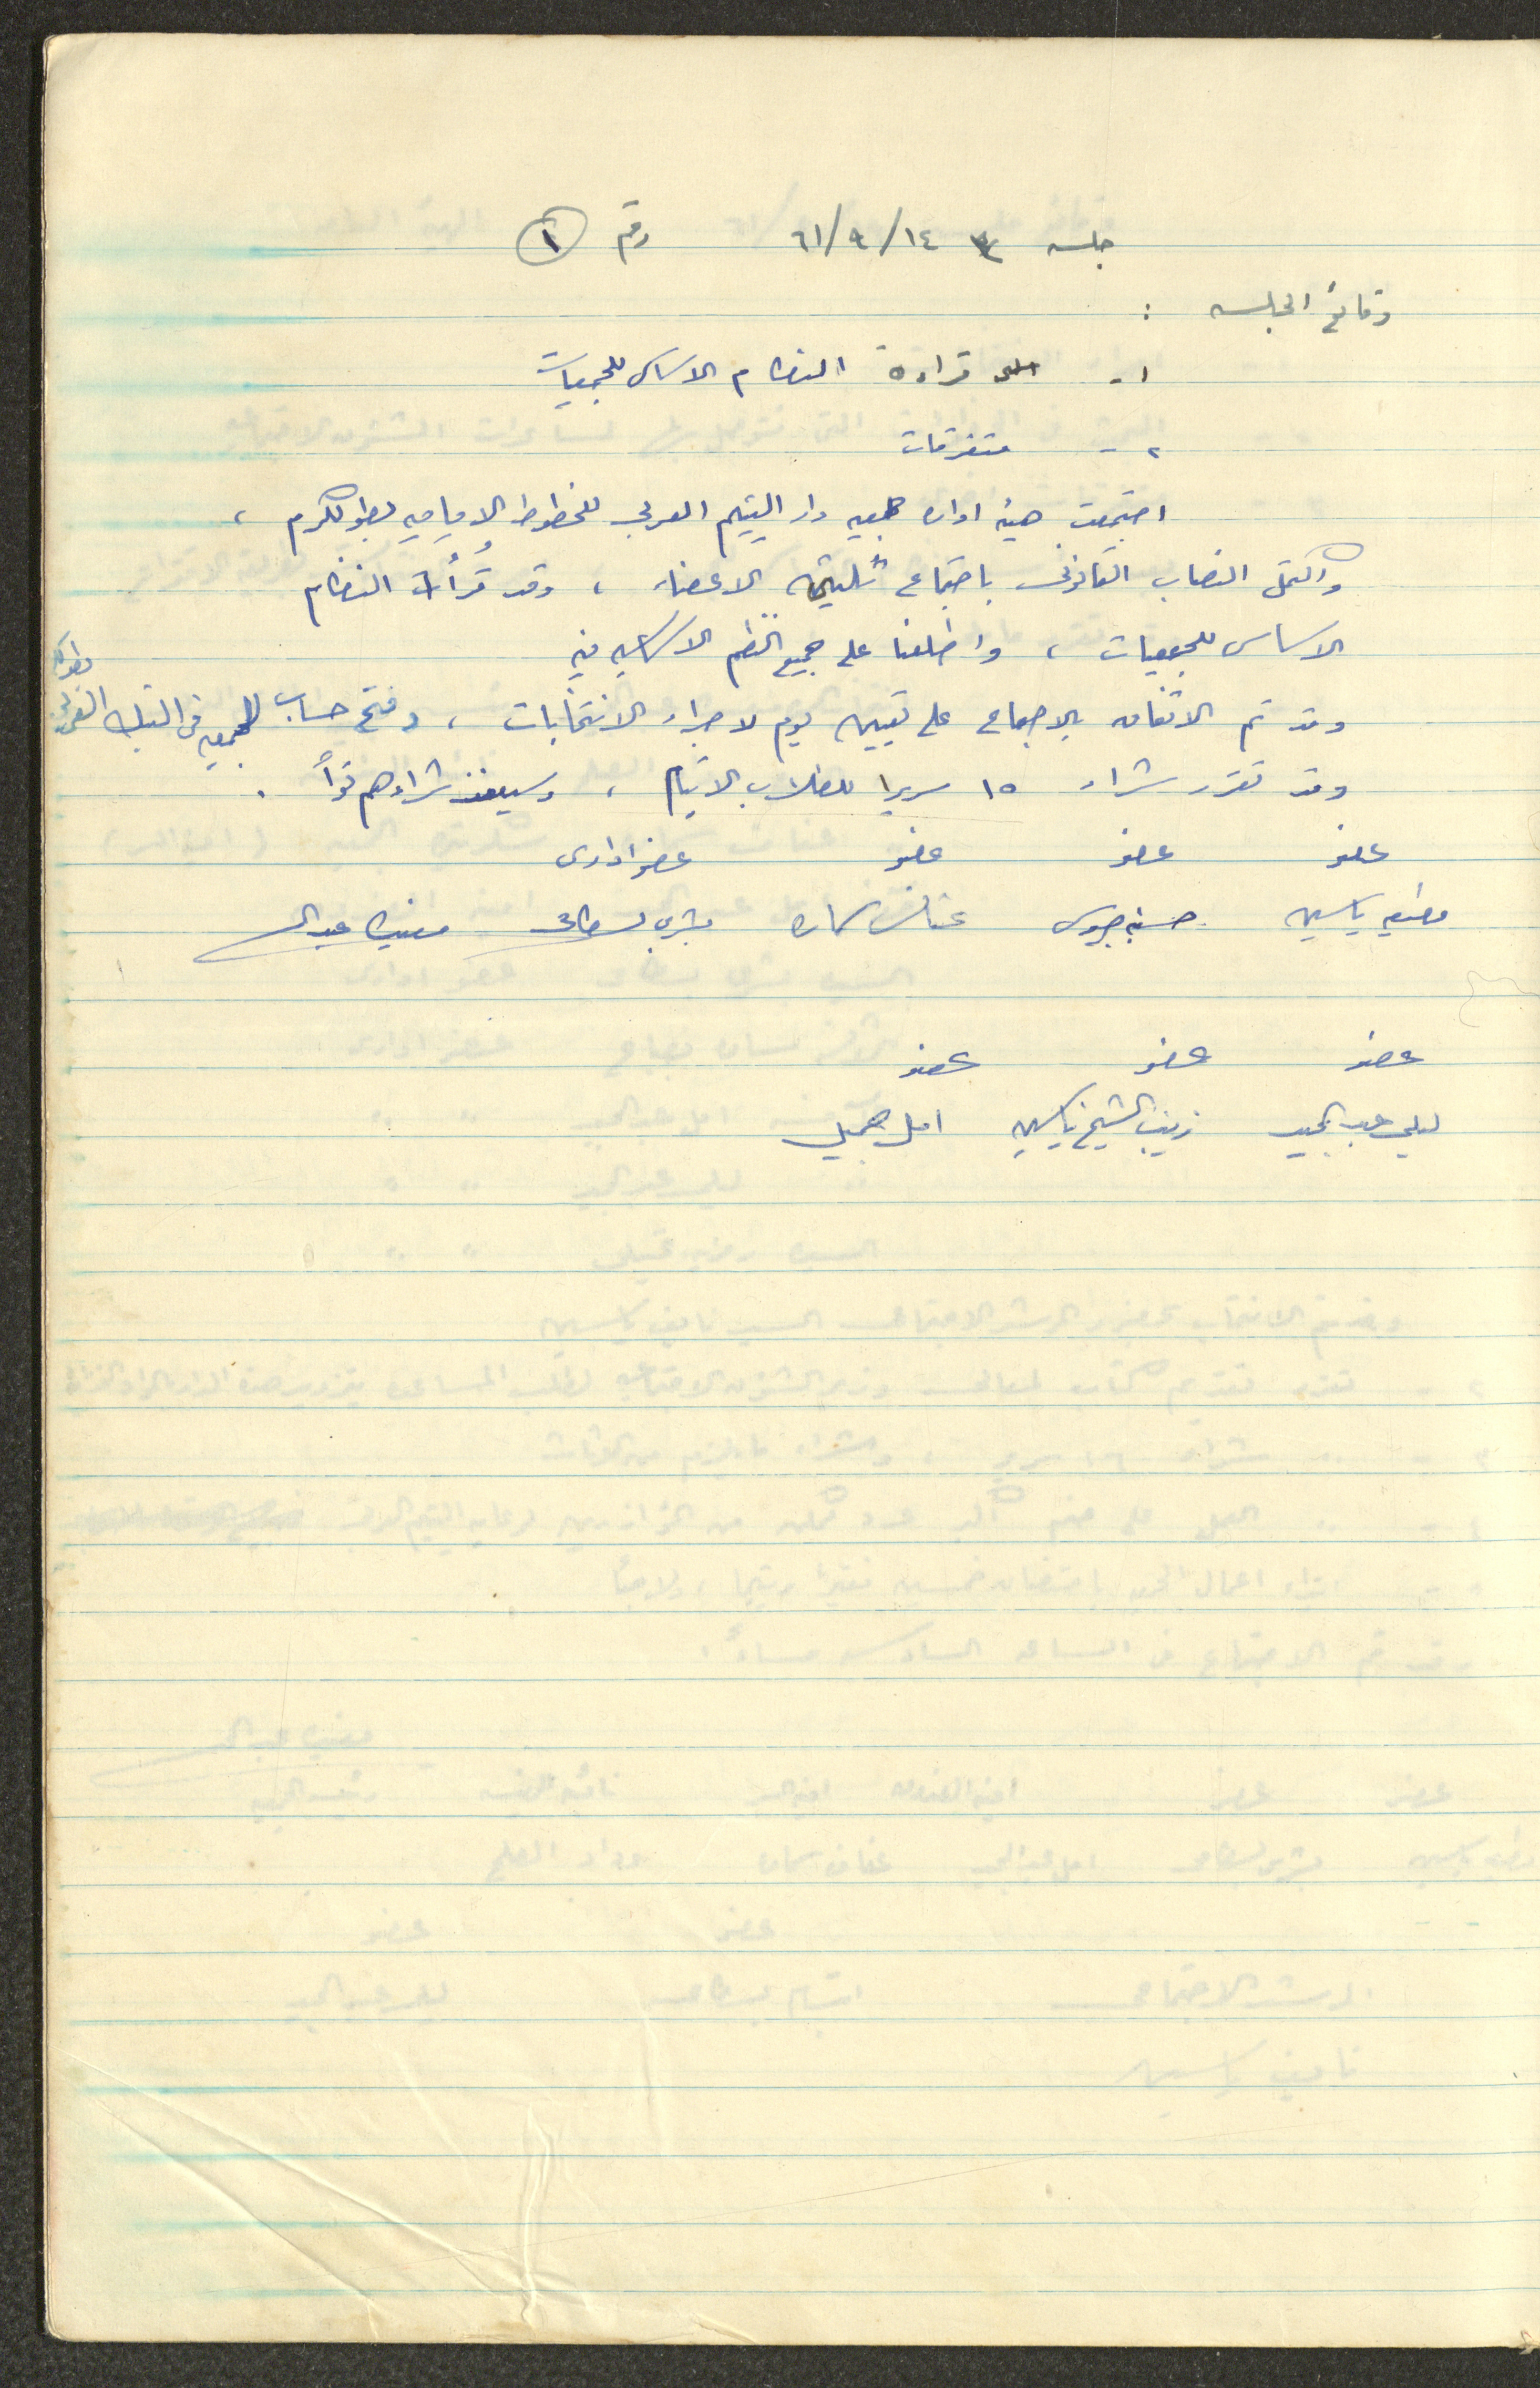 جلسه ١٤/٩/٦١ رقم ١
وقائع الجلسه :
١- قراءة النظام الاساسي للجمعيات
٢- متفرقات
اجتمعت هيئة اداره جمعيه دار اليتيم العربي للخطوط الاماميه بطولكرم ،
واكتمل النصاب القانوني باجتماع ثلثي الاعضاء ، وقد قُرأت النظام
الاساسي للجمعيات ، واطلعنا على جميع النظم الاساسيه فيه
وقد تم الاتفاق بالاجماع على تعيين يوم لاجراء الانتخابات ، وفتح حساب للجمعيه في البنك العربي
وقد تقرر شراء ١٥ سريرا للطلاب الايتام ، وسينفذ شراءهم فوراً .
عضو عضو عضو عضو اداري
ياسين حسنيه عفاف سماره بشرى بسطامي مفيده عبد
عضو عضو عضو
ليلى عبد المجيد زينب الشيخ ياسين امل جميل